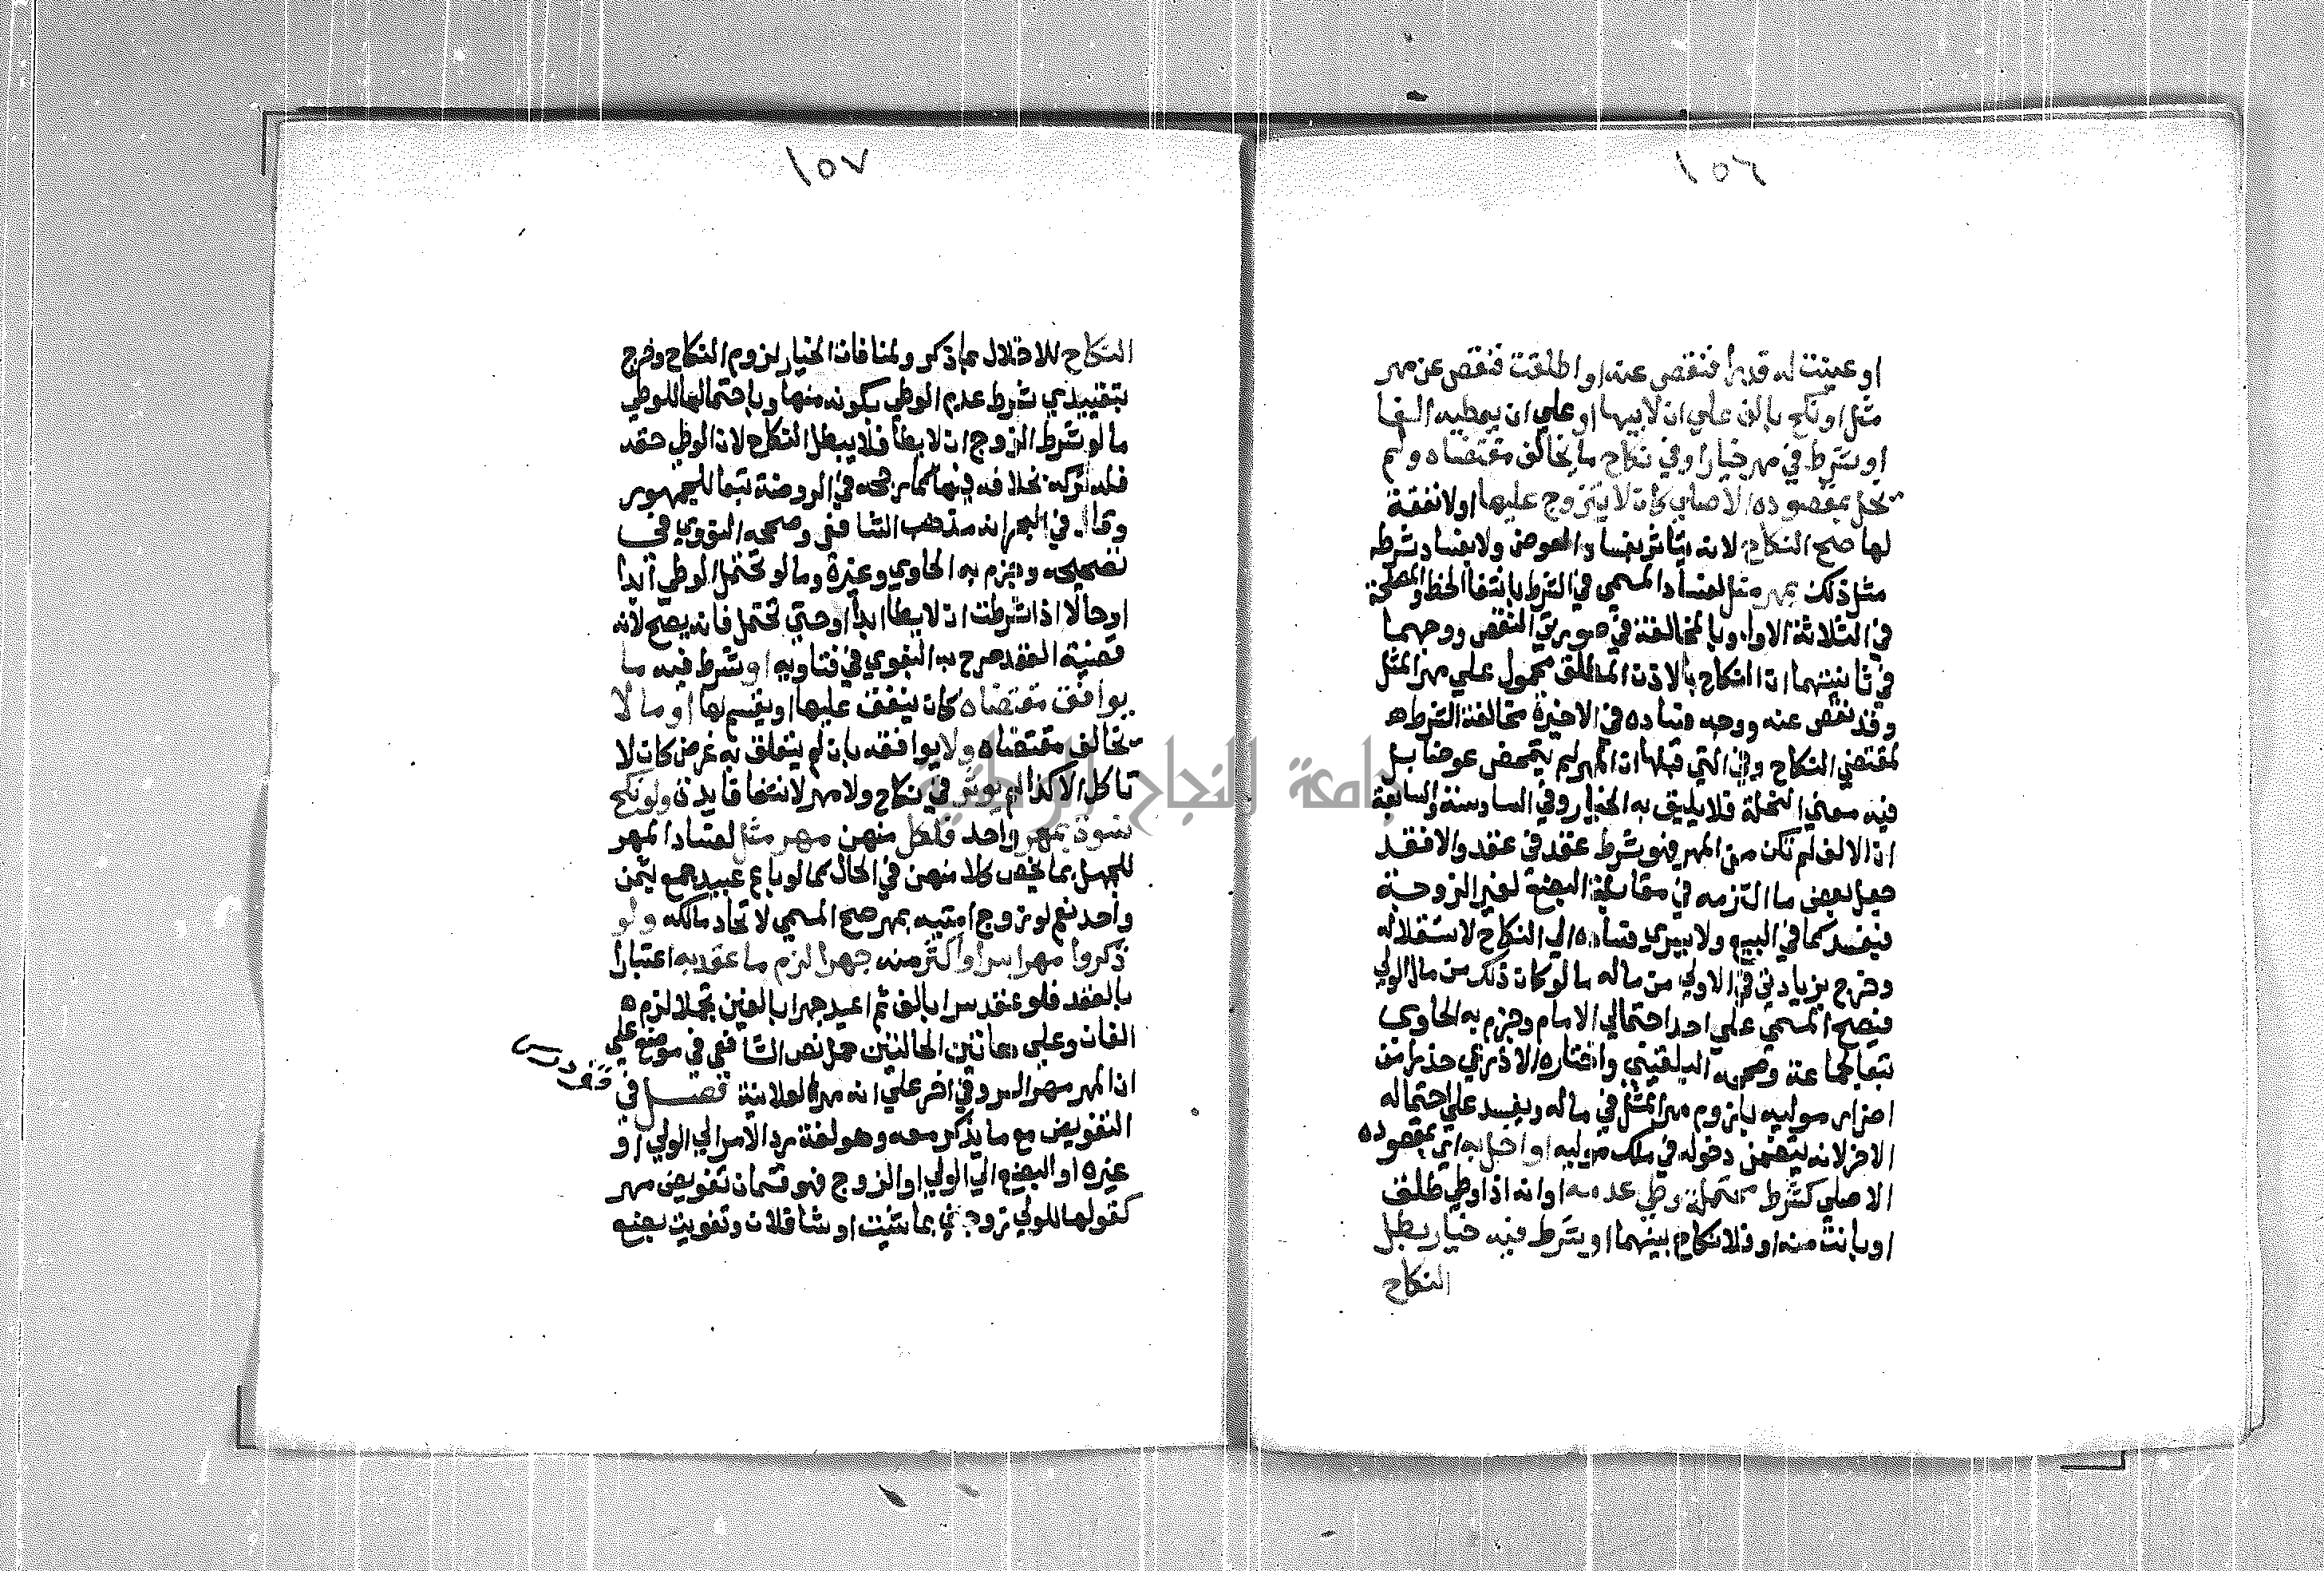 ١٥٦
او عينت له قدرا فنقص عنه او اطلقت فنقص عن مهر
مثل او نكح بالف علي ان لابيها او علي ان يعطيه الفا
او شرط في مهر خيارا وفي نكاح ما يخالف مقتضاه ولم
يخل بمقصوده الاصلي كان لا يتزوج عليها او لا نفقة
لها صح النكاح لانه لا يتاثر بفساد العوض ولا بفساد شرط
مثل ذلك بمهر مثل لفساد المسمي في الشرط بانتفا الحظ والمصلحة
في الثلاثة الاول وبالمخالفة في صورتي النقص ووجهها
في ثانيتهما ان النكاح بالاذن المطلق محمول علي مهر المثل
وقد نقص عنه ووجه فساده في الاخيرة مخالفة الشرط
لمقتضي النكاح وفي التي قبلها ان المهر لم يتمحض عوضا بل
فيه معني النحلة فلا يليق به الخيار وفي السادسة والسابعة
ان الالف لم تكن من المهر فهو شرط عقد في عقد والا فقد
جعل بعض ما التزمه في مقابلة البضع لغير الزوجة
فيفسد كما في البيع ولا يسري فساده الي النكاح لاستقلاله
وخرج بزيادتي في الاولي من ماله ما لو كان ذلك من مال الولي
فيصح المسمي علي احد احتمالي الامام وجزم به الحاوي
تبعا لجماعة وصححه البلقيني واختاره الاذرعي حذرا من
اضرار موليه بلزوم مهر المثل في ماله ويفسد علي احتماله
الاخر لانه يتضمن دخوله في ملك موليه او اخل به اي بمقصوده
الاصلي كشرط محتملة وطي عدمه او انه اذا وطي طلق
او بانت منه او فلا نكاح بينهما او شرط فيه خيار بطل
النكاح
١٥٧
النكاح للاخلال بما ذكر ولمنافاة الخيار لزوم النكاح وخرج
بتقييدي شرط عدم الوطي بكونه منها وباحتمالها للوطي
ما لو شرط الزوج ان لا يطا فلا يبطل النكاح لان الوطي حقه
فله تركه بخلافه فيها كما رجحه في الروضة تبعا للجمهور
وقال في البحر انه مذهب الشافعي وصححه النووي في
تصحيحه وجزم به الحاوي وغيره وما لو لم تحتمل الوطي ابدا
او حالا اذا شرطت ان لا يطا ابدا او حتي تحتمل فانه يصح لانه
قضية العقد صرح به البغوي في فتاويه او شرط فيه ما
يوافق مقتضاه كان ينفق عليها او يقسم لها او ما لا
يخالف مقتضاه ولا يوافقه بان لم يتعلق به غرض كان لا
تاكل الا كذا لم يوثر في نكاح ولا مهر لانتفا فايدته ولو نكح
نسوة بمهر واحد فلكل منهن مهر مثل لفساد المهر
للجهل بما يخص كلا منهن في الحال كما لو باع عبيد جمع بثمن
واحد نعم لو زوج امتيه بمهر صح المسمي لاتحاد مالكه ولو
ذكروا مهرا سرا واكثر منه جهرا لزم ما عقد به اعتبارا
بالعقد فلو عقد سرا بالف ثم اعيد جهرا بالفين تجملا لزم
الفان وعلي هاتين الحالتين حمل نص الشافعي في موضع علي
ان المهر مهر السر وفي اخر علي انه مهر العلانية فصل في
التفويض مع ما يذكر معه وهو لغة رد الامر الي الولي او
غيره او البضع الي الولي او الزوج فهو قسمان تفويض مهر
كقولها للولي زوجني بما شئت او شا فلان وتفويت بضع
جامعة النجاح الوطنية